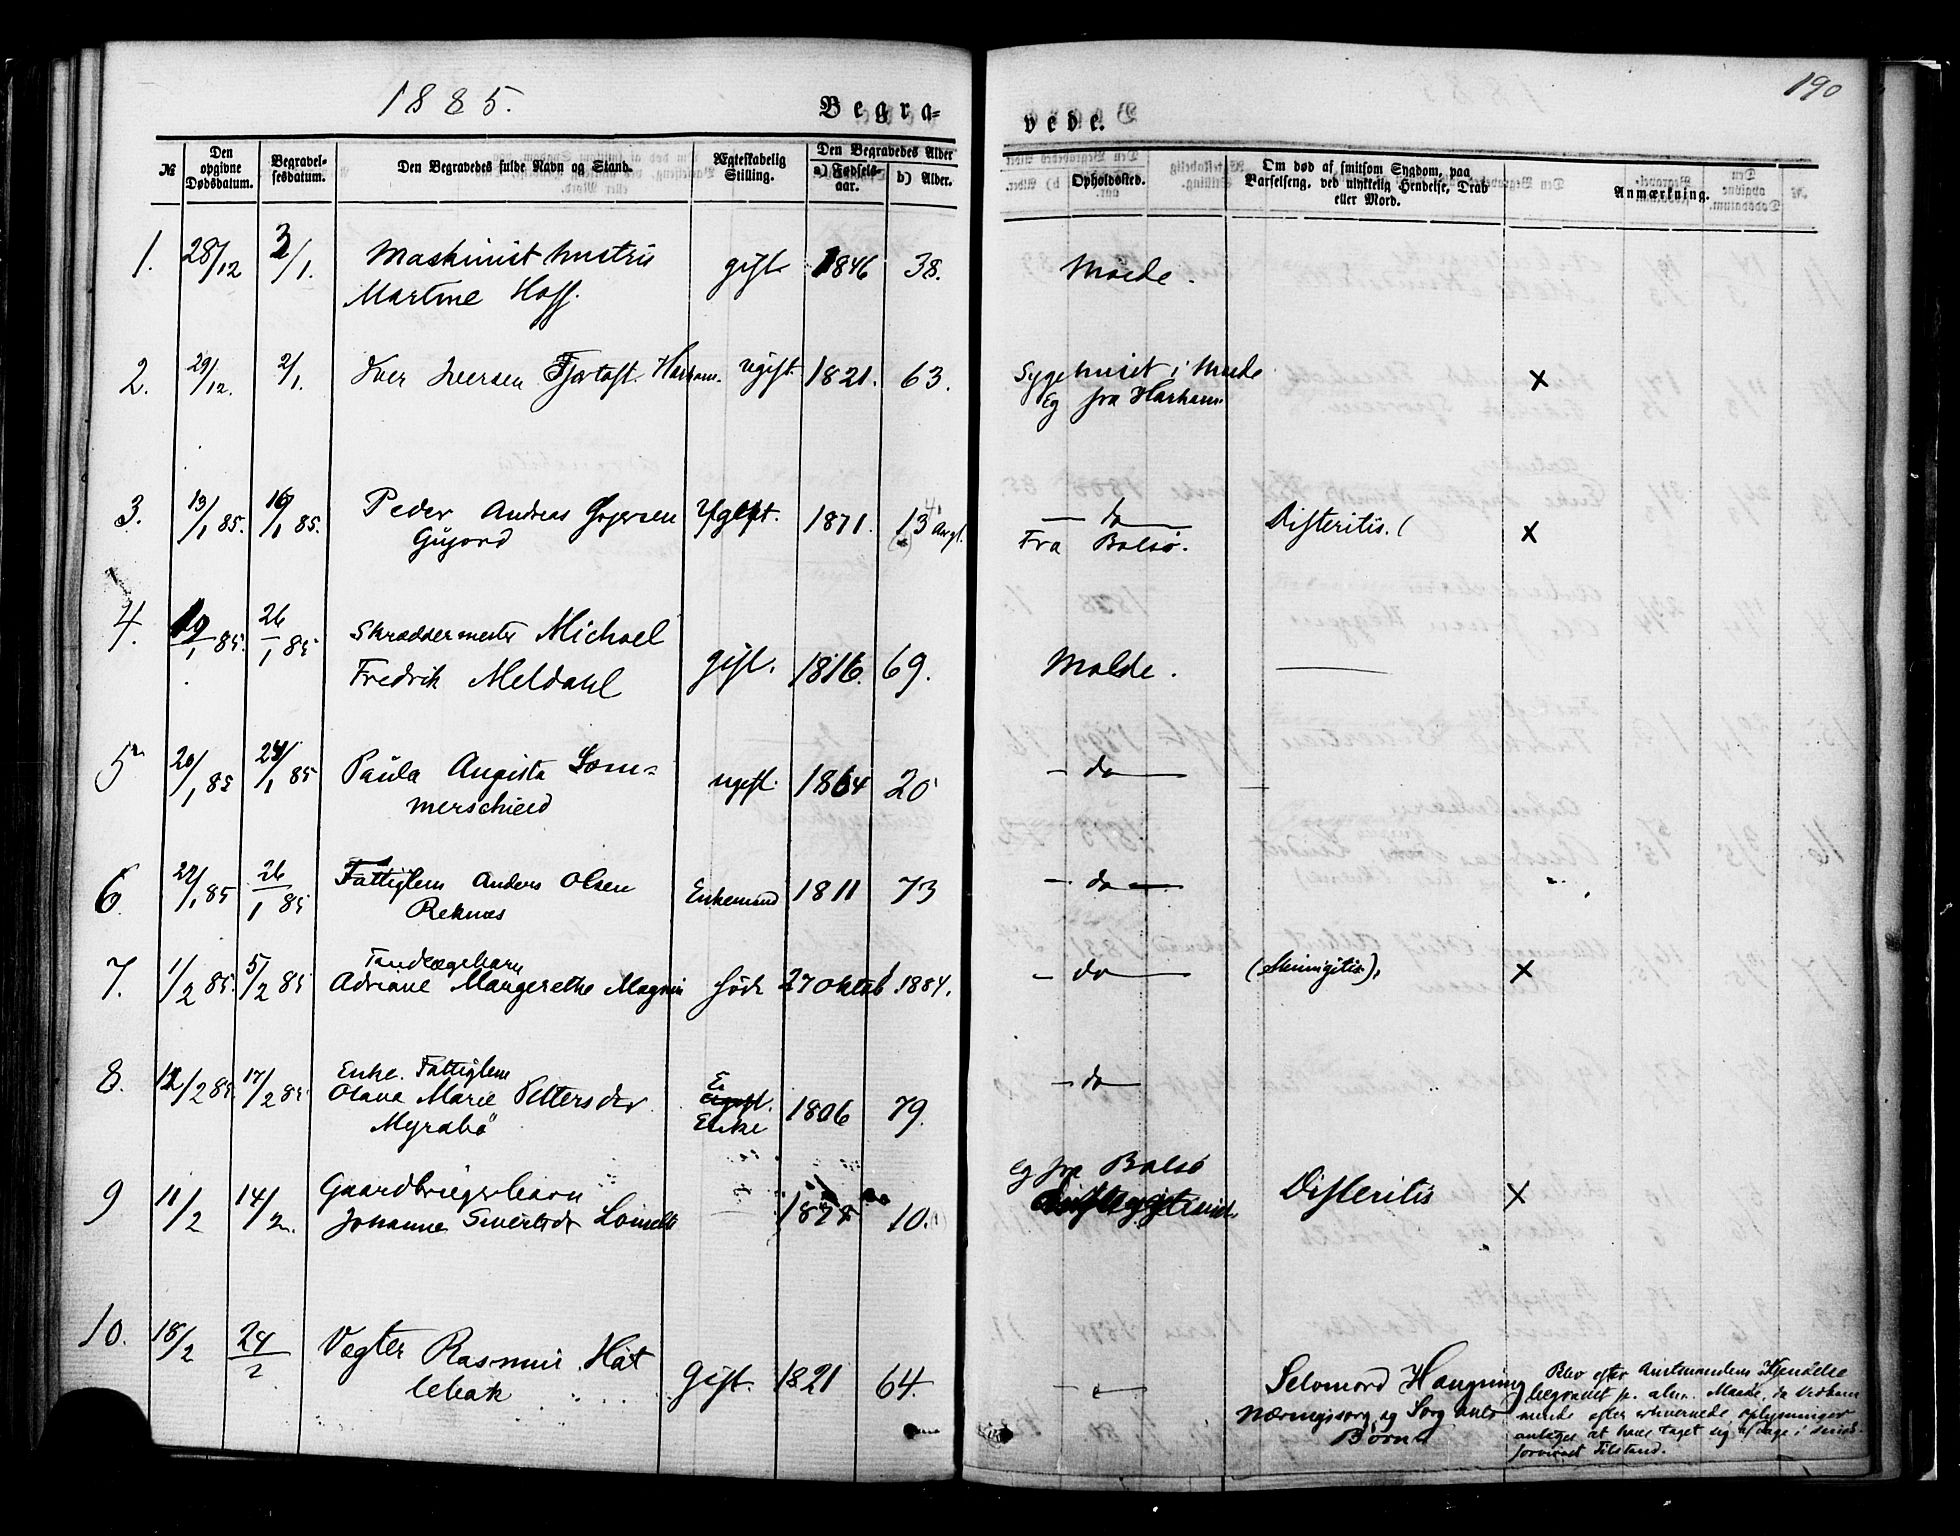 1885.
Begra=
vede.
190
№
Den opgivne Dødsdatum.
Begravel-sesdatum.
Den Begravedes fulde Navn og Stand.
Ægteskabelig Stilling.
Den Begravedes Alder
a) Fødsels-aar.
b) Alder.
Opholdssted.
Om død af smitsom Sygdom, paa Barselseng, ved ulykkelig Hendelse, Drab eller Mord.
Anmærkning.
1. 28/12 2/1. Maskinist hustru gift 1846 38. Molde.
Martine Hoff.
2. 29/12. 2/1. Iver Iversen Fjortoft. Harham. ugift. 1821. 63. Sygehuset i Molde ×
Eg fra Harham
3. 13/1 85. 16/1 85. Peder Andreas 1871. 13 — do — Difteritis. ×
Fra Bolsø.
4. 19/1 85. 26/1 85 Skræddermester Michael
Fredrik Meldahl gift. 1816. 69. Molde. —
5 20/1 85 24/1 85 Paula Augusta Som=
merschield ugift. 1864 20 — do —
6. 22/1 85 26/1 85 Fattiglem Anders Olsen Enkemand 1811 73 — do —
Reknes
7. 1/2 85. 5/2 85 Tandlægebarn
Adriane Margrethe født 27 Oktob 1884. — do — ×
8. 12/2 85. 17/2 85 Enke. Fattiglem
Olava Marie Pettersdtr Enke 1806 79. — do —
Myrabø
9 11/2 14/2 Gaardbrugerbarn Eg fra Bolsø
Johanne Sivertsdtr 10. Difteritis ×
10. 18/2 24/2 Vegter Rasmus Hat
lebak Gift. 1821 64. — " — Selvmord Hængning
Næringssorg og Sorg
Børn
Blev efter Amtmandens Kjendelse
begravet p. alm. Maade, da Vedkom
mende efter erhvervede oplysninger
antages at have taget sig af Dage i sinds
forvirret Tilstand.